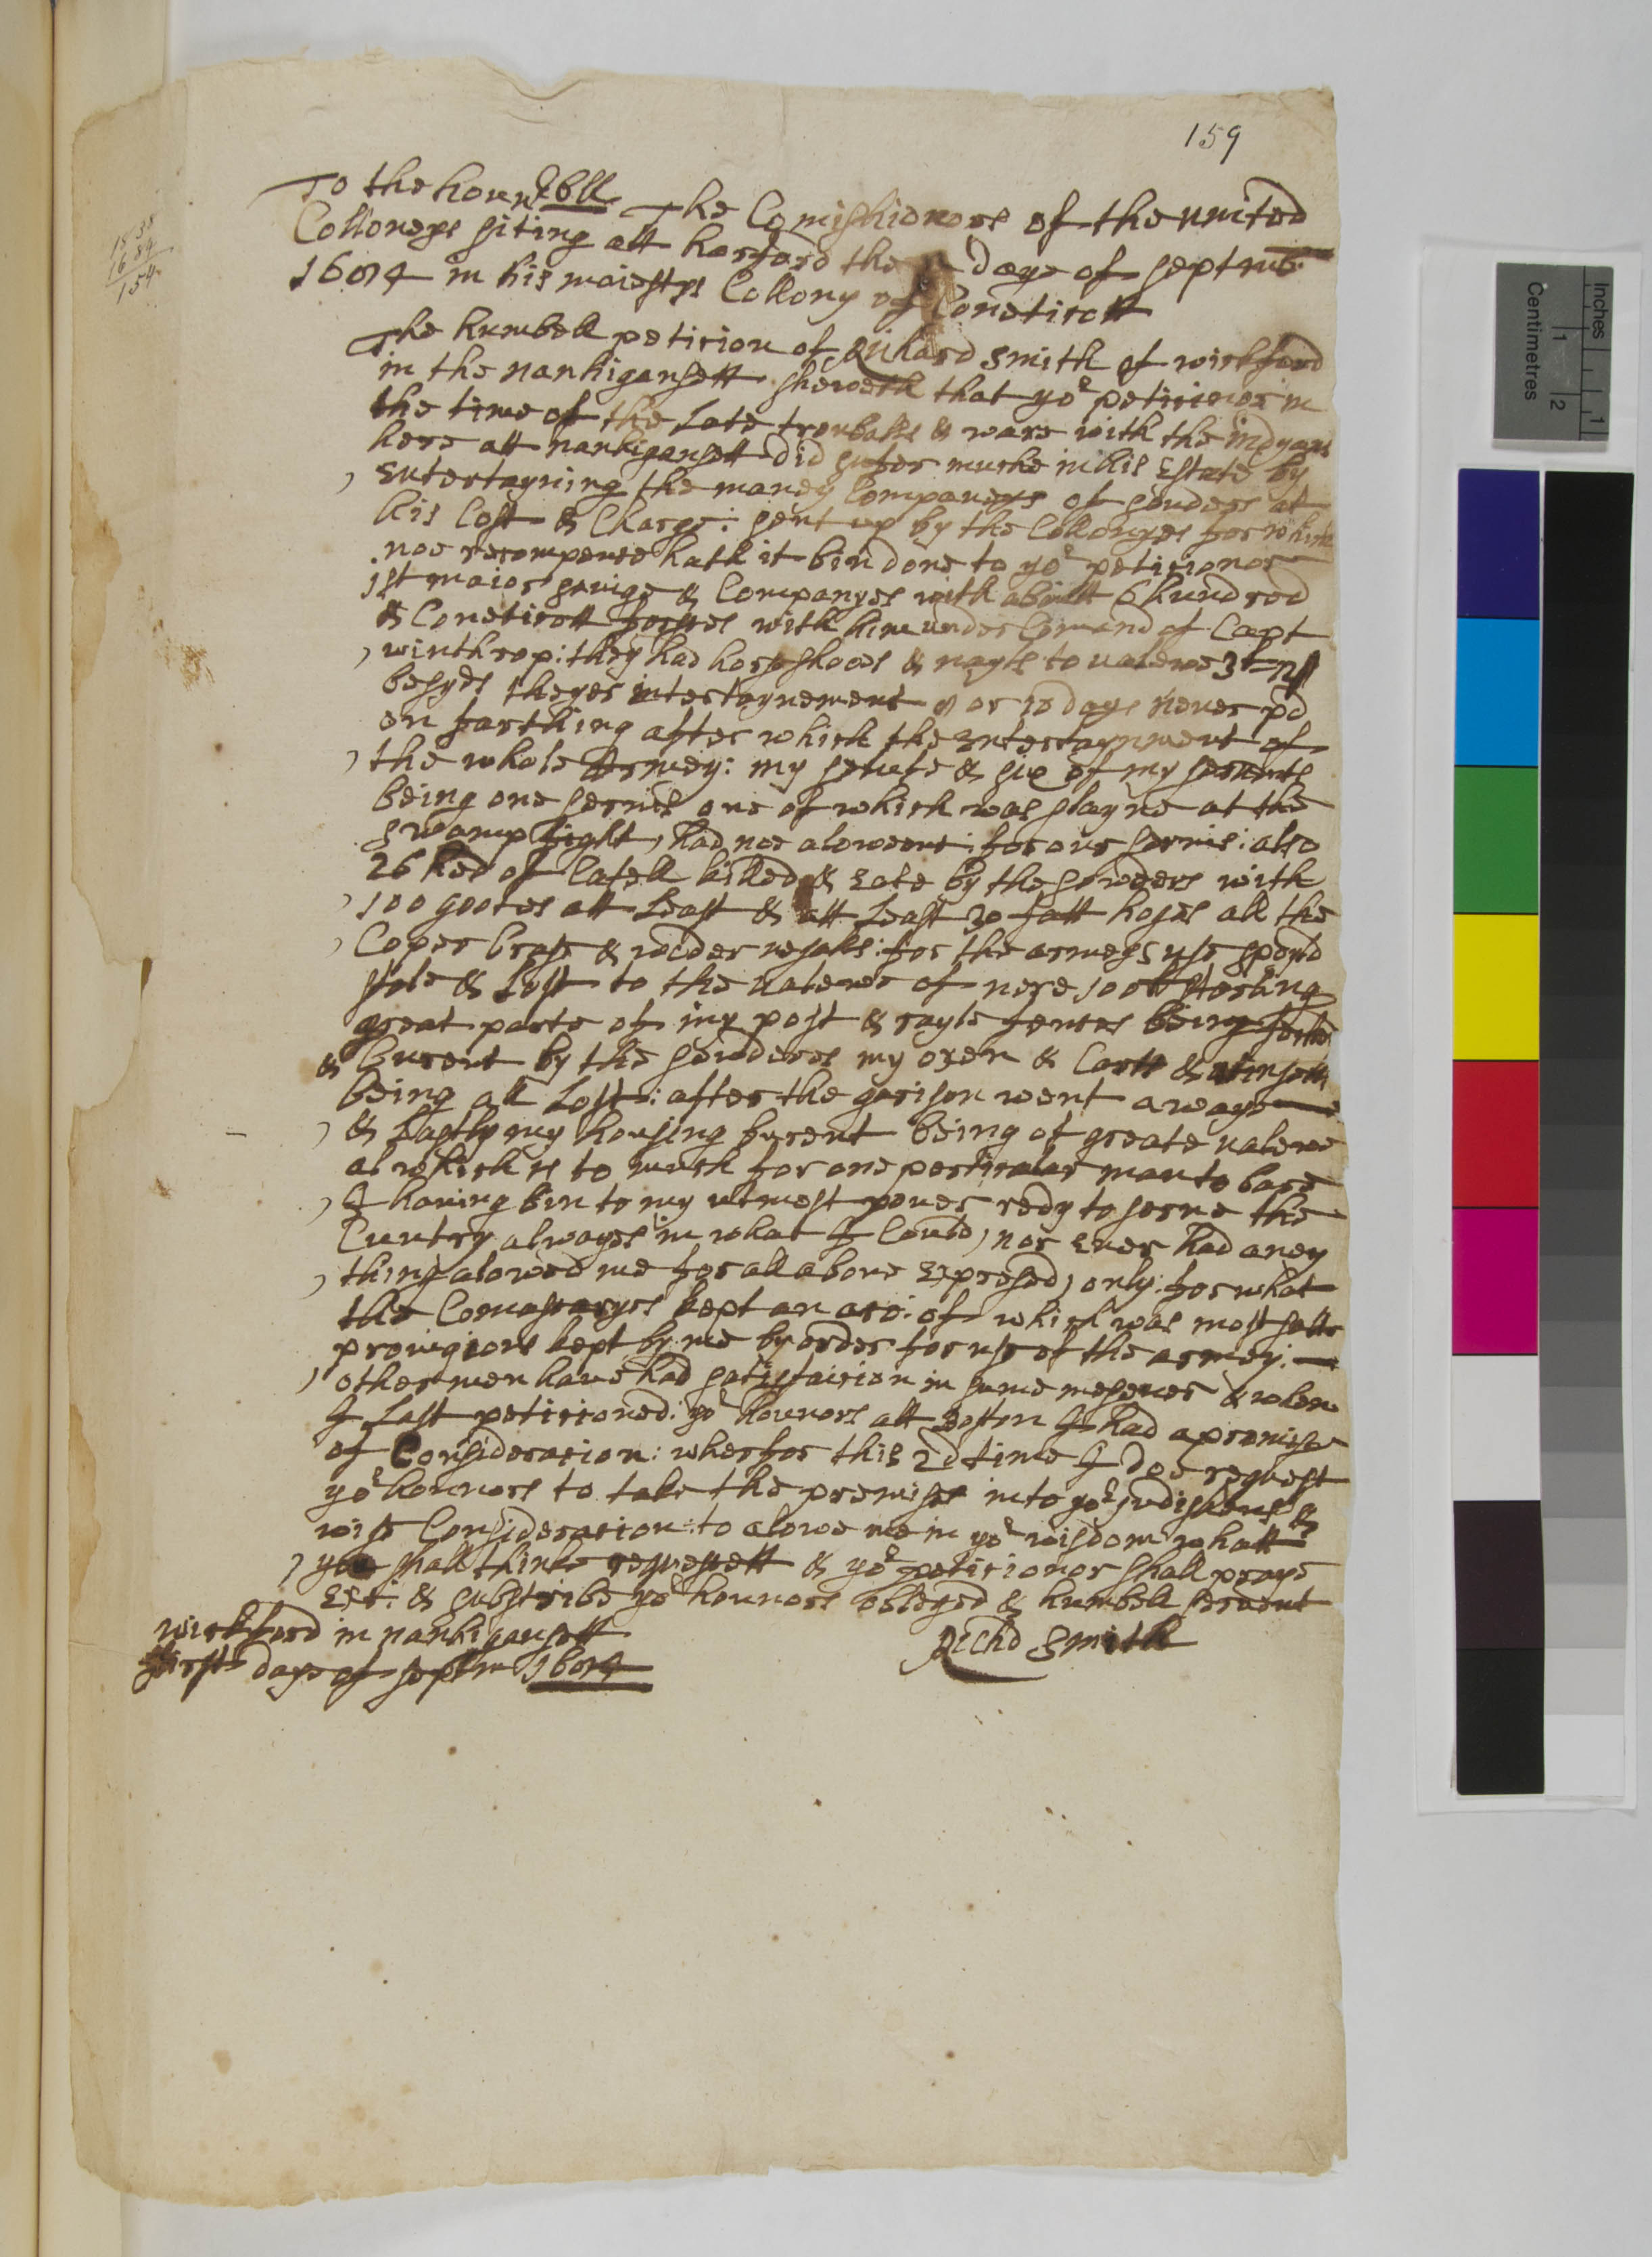 159
To the houn:rbll The Comishionors of the united
Colloneys siting att harford the daye of septmb:
1684 in his maiestys Collony of Coneticott
The humbell peticion of Richard Smith of wickford
in the nankigansett sheweth that yor peticioner in
the time of the late trouballs & ware with the indyans
here att nankigansett did sufer muche in his Estate by
entertayning the maney Companeys of souders at
his Cost & Charge: sent up by the Collonyes for which
noe recompence hath it bin done to yor peticionor
1st maior savige & Companyes with aboutt 6 hundred
& Coneticott forses with him under Comand of Capt
winthrop: they had horsshooes & nayls to valewe
besyds theyer intertaynement 9 or 10 days never pd
on farthing after which the entertaynment of
the whole Armey: my selufe & six of my servants
being one servis one of which was slayne at the
swamp fight, had noe alowence for our servis: also
26 hed of Catell killed & eate by the sowders with
100 gootes att least & att least 30 fatt hoges all the
Coper brass & wooder vesalls: for the armeys use spoyld
stole & lost to the valewe of nere 100ll sterling
great parte of my post & rayle fences being
& burent by the sowders my oxen & Carts &
being all lost: after the garison went awaye
& lastly my housing burent being of greate valewe
al which is to much for one perticular man to bare
I having bin to my utmost power redy to serve the
Cuntry alwayes in what I Could, nor Ever had aney
thing alowed me for all above Expresed, only for what
the Comasaryes kept an aco: of which was most salte
provigions kept by me by order for use of the armey:
other men have had satisfaicion in sume mesever & when
I last peticioned: yor hounors att Boston I had a promise
of Consideracion: wherfor this 2d time I doe request
yor hounors to take the premises into yor judishous &
wise Consideracion: to alowe me in yor wisdom whatt
you shall thinke & yor peticionor shall praye
Etc: & subscribe yor hounors obleged & humbell servent
Richd Smith
wickford in nankigansett
first daye of septm 1684